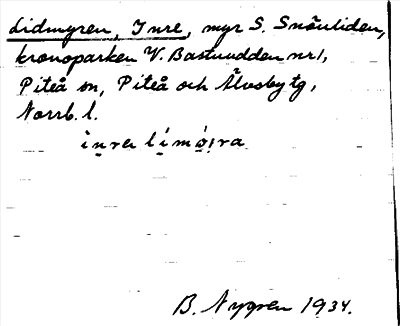 Lidmyren, Inre, myr S. Snöuliden,
kronoparken V. Bastuudden nr 1,
Piteå sn, Piteå och Älvsby tg,
Norrb. l.
B. Nygren 1934.